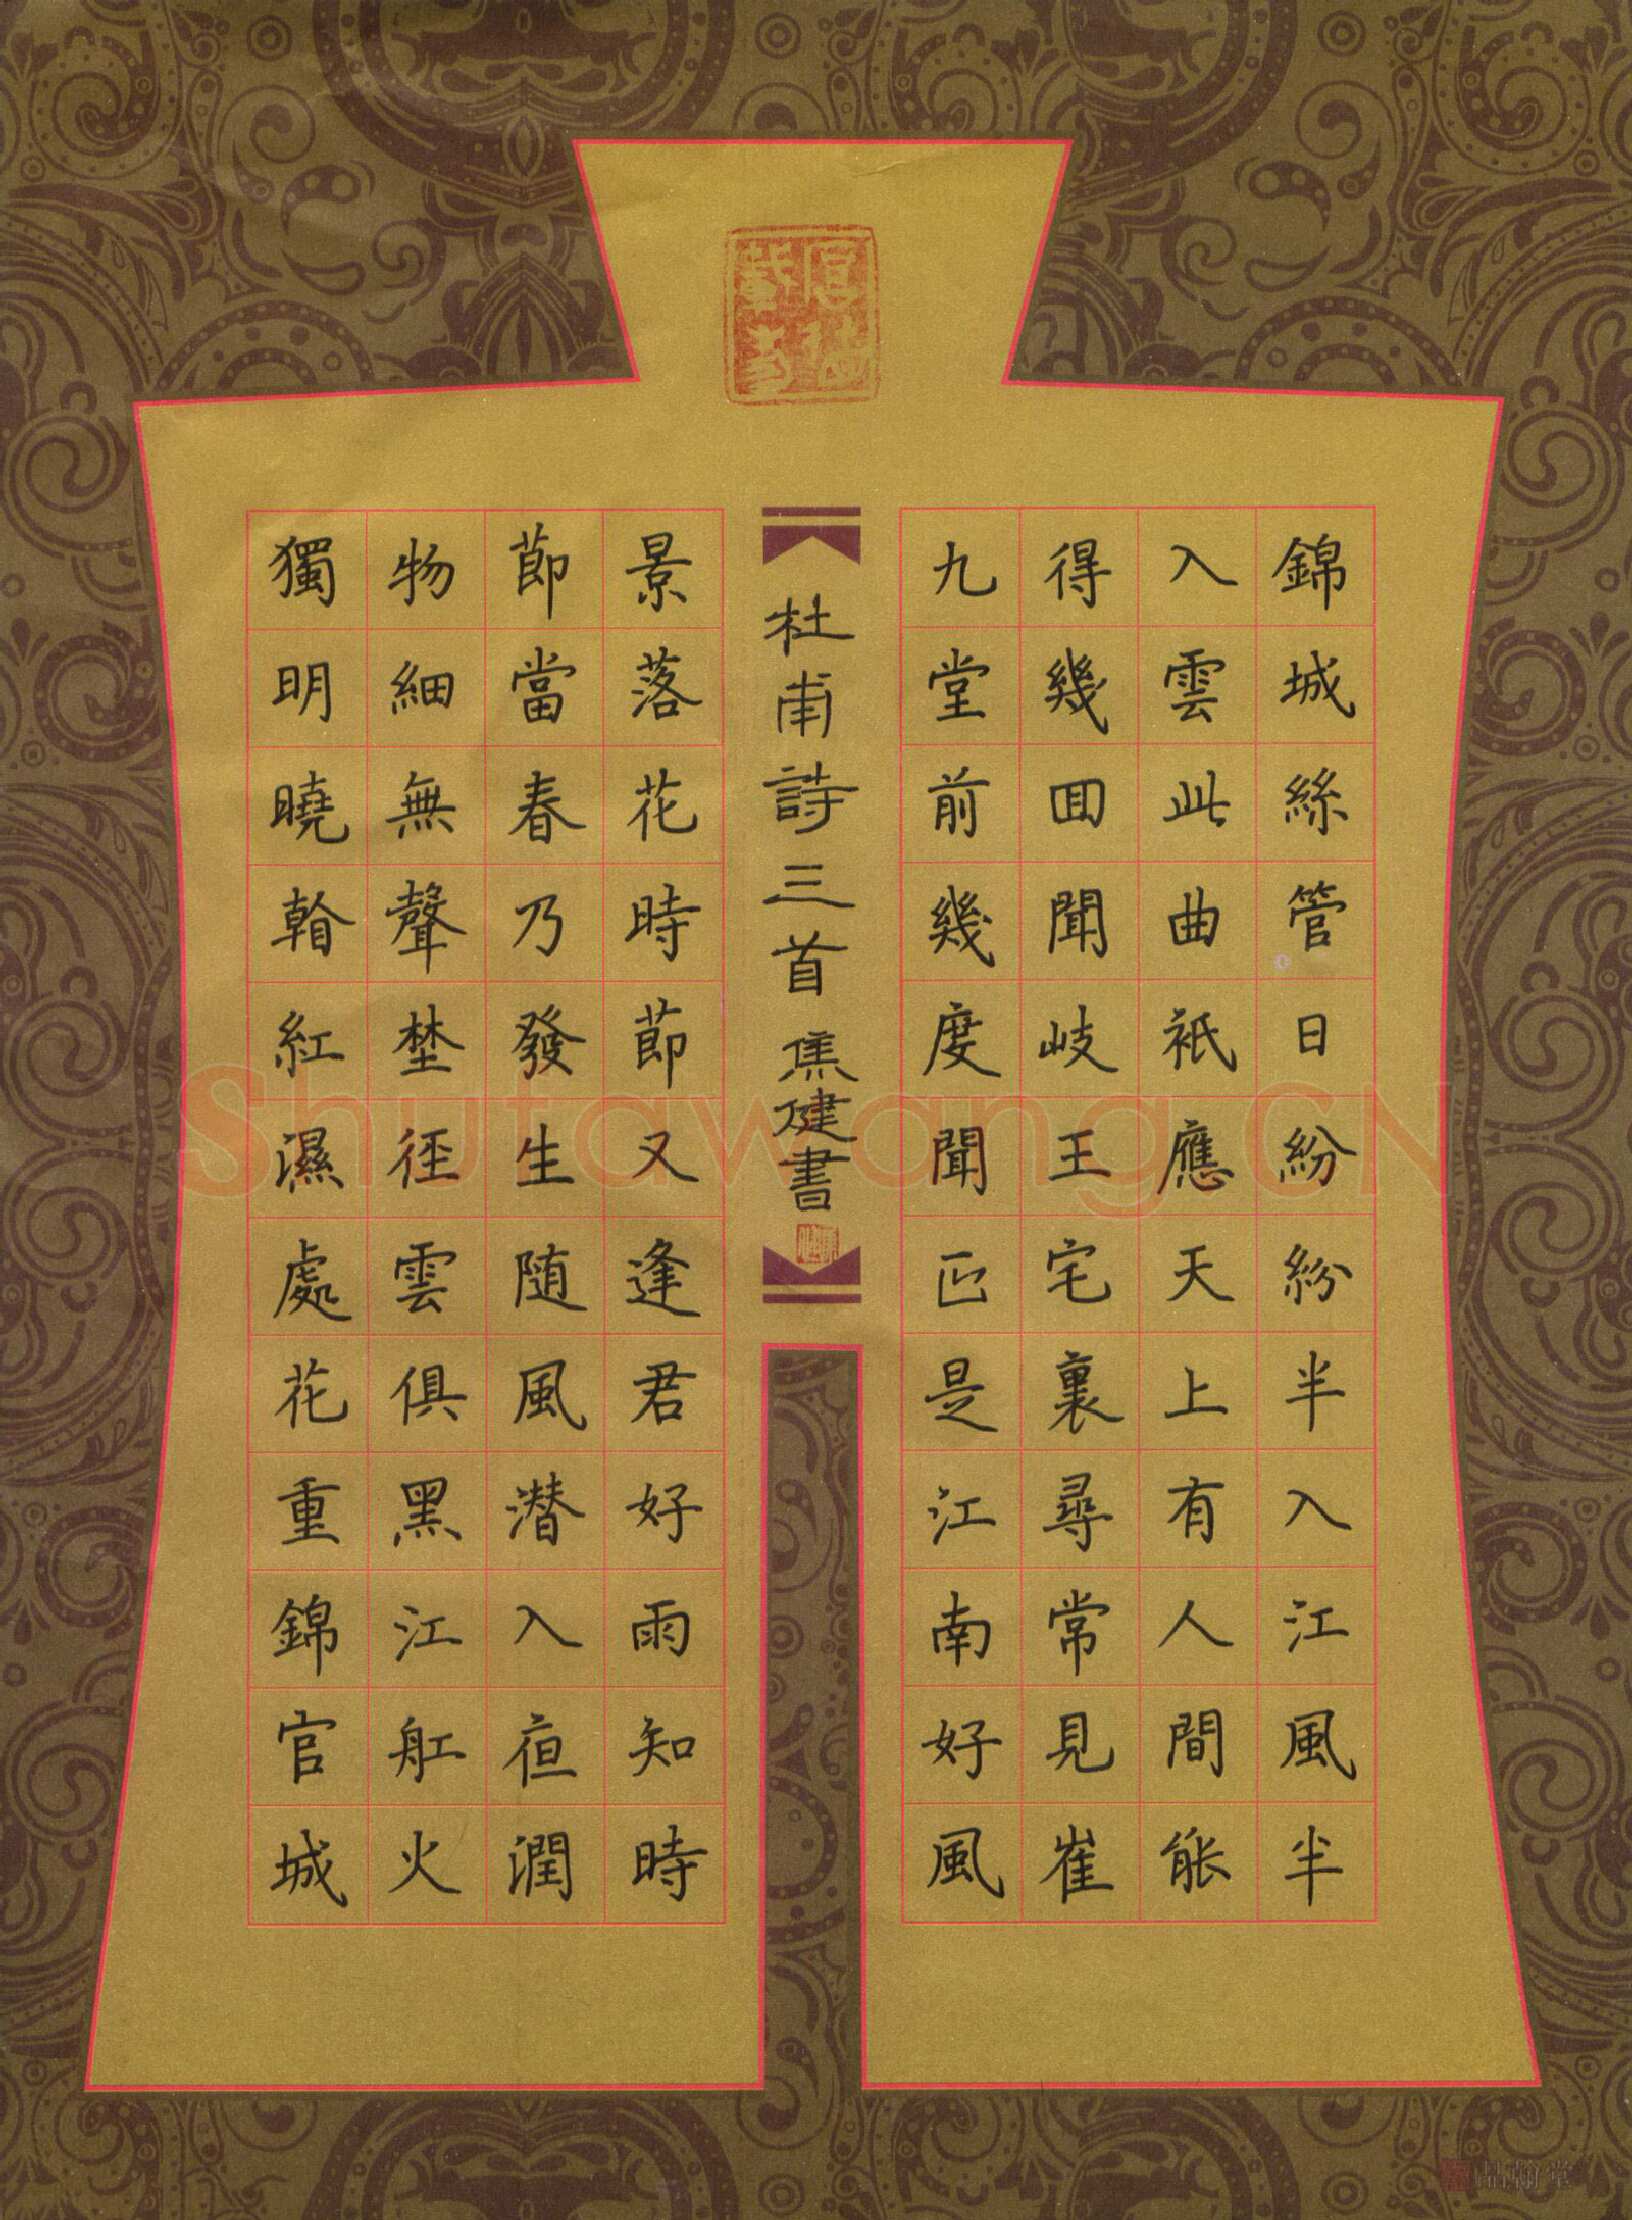 錦城絲管日紛紛半入江風半
入雲此曲祇應天上有人間能
得幾囬聞岐王宅裏尋常見崔
九堂前幾度聞正是江南好風
杜甫詩三首 焦健書
景落花時節又逢君好雨知時
節當春乃發生随風潜入亱潤
物細無聲埜徑雲俱黑江舡火
獨明曉看紅濕處花重錦官城
Shutawang.CN
品翰堂